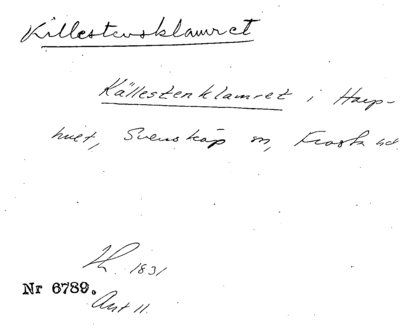 Killestensklamret
Källestenklamret i Harp-
huet, Svensköp sn, Frosta hd.
Lh. 1831
Nr 6789.
Akt 11.